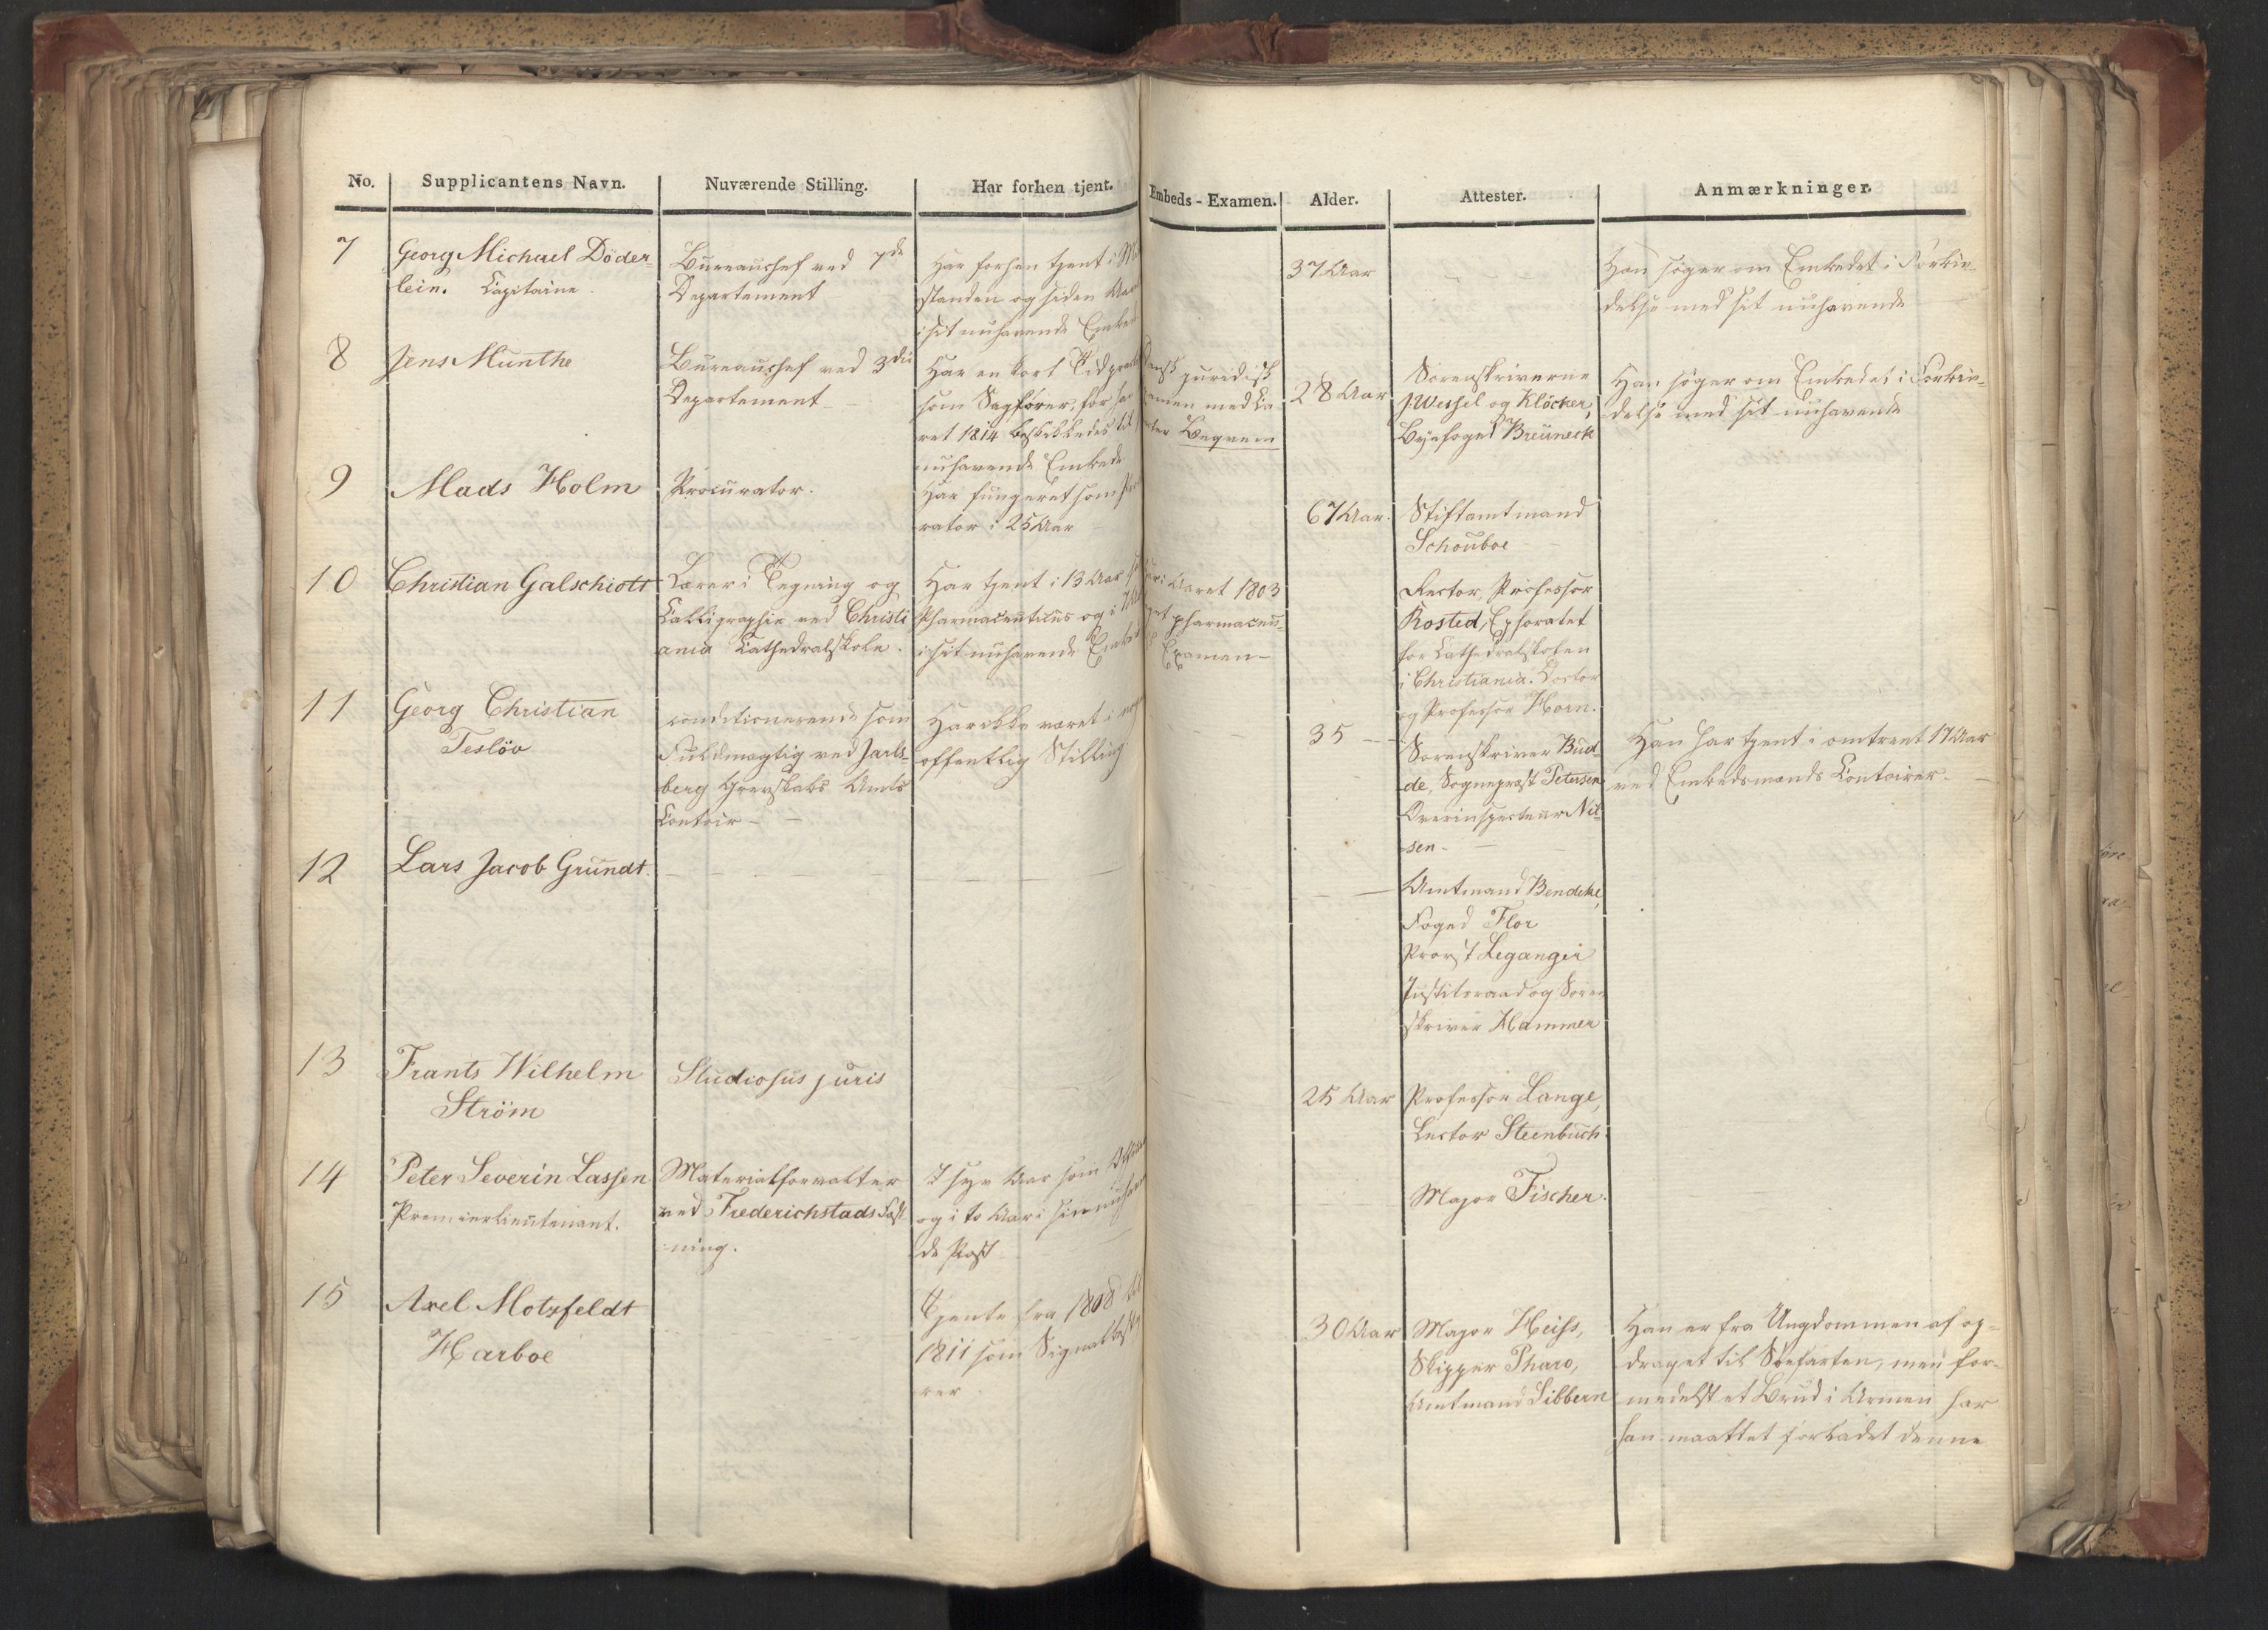 No. Supplicantens Navn. Nuværende Stilling. Har forhen tjent. Embeds-Examen. Alder. Attester. Anmærkninger.
7
Georg Michael Döder-
lein. Capitaine
Bureauchef ved 7de
Departement
Har forhen tjent i
standen og siden
i sit nuhavende
37 Aar
Han søger om Embedet i Forbin-
delse med sit nuhavende
8
Jens Munthe
Bureauchef ved 3die
Departement
Har en kort Tid
som Sagfører, før
ret 1814 beskikkedes til
nuhavende Embede
Dansk juridisk
Examen med Ca-
Beqvem
28 Aar
Sorenskriverne
J. Wessel og Klöcker,
Byefoged Breüneck
Han søger om Embedet i Forbin-
delse med sit nuhavende
9
Mads Holm
Procurator.
Har fungeret som
rator i 25 Aar
67 Aar.
Stiftamtmand
Schouboe
10
Christian Galschiott
Lærer i Tegning og
Calligraphie ved Christi
ania Cathedralskole.
Har tjent i 13 Aar
Pharmaceuticus og i
i sit nuhavende
Aaret 1803
pharmaceu-
Examen
Rector, Professor
Rosted, Ephoratet
for Cathedralskolen
i Christiania. Doctor
og Professor Horn.
11
Georg Christian
Teslöv
conditionerende som
Fuldmægtig ved Jarls-
berg Grevskabs Amts
Contoir
Har ikke været i
offentlig Stilling
35
Sorenskriver Bud-
de, Sognepræst Petersen
Overinspecteur Nil-
sen
Han har tjent i omtrent 17 Aar
ved Embedsmænds Contoirer
12
Lars Jacob Grundt
Amtmand Bendeke,
Foged Flor
Provst Leganger
Justitsraad og Soren
skriver Hammer
13
Frants Wilhelm
Ström
Studiosus juris
25 Aar
Professor Lange,
Lector Steenbuch
14
Peter Severin Lassen
Premierlieutenant.
Materialforvalter
ved Frederichstads Fæst
ning.
I syv Aar som
og i to Aar i sin
de Post
Major Fischer.
15
Axel Motzfeldt
Harboe
Tjente fra 1808 til
1811 som
rer
30 Aar
Major Heiss,
Skipper Pharo,
Amtmand Sibbern
Han er fra Ungdommen af op-
draget til Søefarten, men for-
medelst et Brud i Armen har
han maattet forladet denne